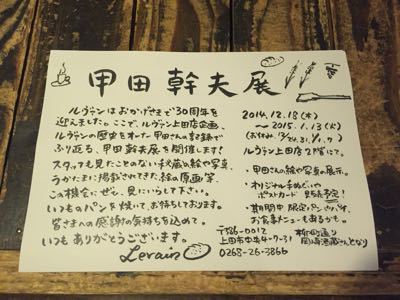 甲田幹夫展
ルヴァンはおかげさまで30周年を
迎えました。ここで、ルヴァン上田店企画、
ルヴァンの歴史をオーナー甲田さんの記録で
ふり返る、甲田幹夫展を開催します!
スタッフも見たことのない秘蔵の絵や写真、
うかたまに掲載されてきた、絵の原画等、
この機会にぜひ、見にいらして下さい。
いつものパンを焼いて、お待ちしております。
皆さまへの感謝の気持ちを込めて。
いつもありがとうございます。
Levain
2014.12.18(木)
〜2015.1.13(火)
ルヴァン上田店2階にて。
・甲田さんの絵や写真の展示。
・オリジナル手ぬぐいや
ポストカード 販売予定!
・期間中 限定パン
お食事メニューもあるかも。
〒386-0012
上田市中央4-7-31
0268-26-3866
柳町通り
岡崎酒蔵さんとなり